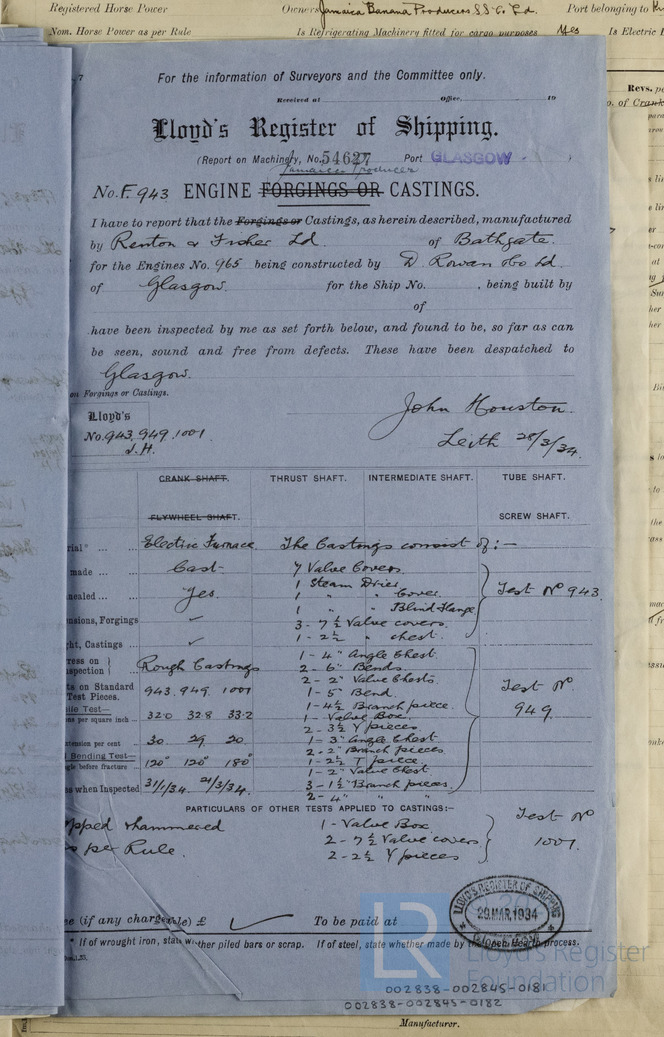 Registered Horse Power Owners Jamaica Banana Producers SS Co. Ld. Port belonging to
Nom. Horse Power as per Rule Is Refrigerating Machinery fitted for cargo purposes Yes Is Electric
Revs. p
o. of Crank
7
For the information of Surveyors and the Committee only.
Received at Office, 19
Lloyd's Register of Shipping.
(Report on Machinery, No. 54627 Port GLASGOW
Jamaica Producer
No. F. 943 ENGINE FORGINGS OR CASTINGS.
I have to report that the Forgings or Castings, as herein described, manufactured
by Renton & Fisher Ld. of Bathgate.
for the Engines No. 965 being constructed by D. Rowan & Co Ld.
of Glasgow. for the Ship No. , being built by
of
have been inspected by me as set forth below, and found to be, so far as can
be seen, sound and free from defects. These have been despatched to
Glasgow.
on Forgings or Castings.
Lloyd's
No. 943, 949, 1001
J.H.
John Houston.
Leith 28/3/34.
CRANK SHAFT. THRUST SHAFT. INTERMEDIATE SHAFT. TUBE SHAFT.
FLYWHEEL SHAFT. SCREW SHAFT.
rial* Electric Furnace The Castings consist of:-
made Cast 7 Valve Covers.
1 Steam Drier
nealed Yes 1 " " Cover Test No 943.
1 " " Blind Flange
nsions, Forgings ✓ 3 - 7½ Valve covers.
ht, Castings ✓ 1 - 2½ " chest.
1 - 4" Angle Chest.
ress on
spection Rough Castings 2 - 6" Bends.
2 - 2" Valve Chests
ts on Standard
Test Pieces. 943. 949. 1001 1 - 5" Bend. Test No
1 - 4½ Branch piece. 949.
ile Test—
ons per square inch 32.0 32.8 33.2 1 - Valve Box.
2 - 3½ Y pieces
xtension per cent 30 29 20 1 - 3" Angle Chest
2 - 2" Branch pieces
Bending Test—
gle before fracture 120° 120° 180° 1 - 2½ T piece.
1 - 2" Valve Chest.
s when Inspected 31/1/34. 21/3/34. 3 - 1½" Branch pieces.
2 - 4" " "
PARTICULARS OF OTHER TESTS APPLIED TO CASTINGS:-
pped & hammered 1 - Valve Box Test No
s per Rule. 2 - 7½ Valve covers 1001.
2 - 2½ Y pieces
e (if any chargeable) £ To be paid at
LLOYD'S REGISTER OF SHIPPING
29 MAR 1934
GLASGOW
* If of wrought iron, state whether piled bars or scrap. If of steel, state whether made by the Open Hearth process.
LR
Lloyd's Register
Foundation
002838-002845-0181
002838-002845-0182
Manufacturer.